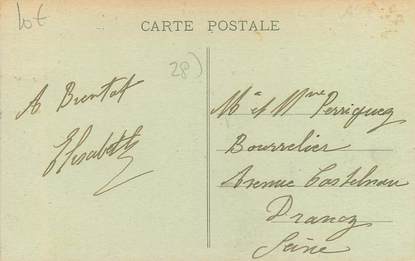 Lot
CARTE POSTALE
28)
A Bientot
Elisabeth
Mr et Mme Perriquey
Bourrelier
Avenue Castelnau
Drancy
Seine